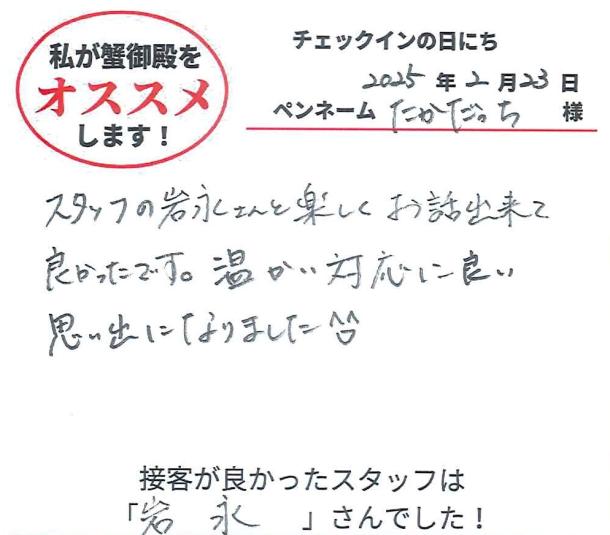 私が蟹御殿を
オススメ
します！
チェックインの日にち
2025 年 2 月 23 日
ペンネーム たかだっち 様
スタッフの岩永さんと楽しくお話出来て
良かったです。温かい対応に良い
思い出になりました^^
接客が良かったスタッフは
「岩 永 」さんでした！